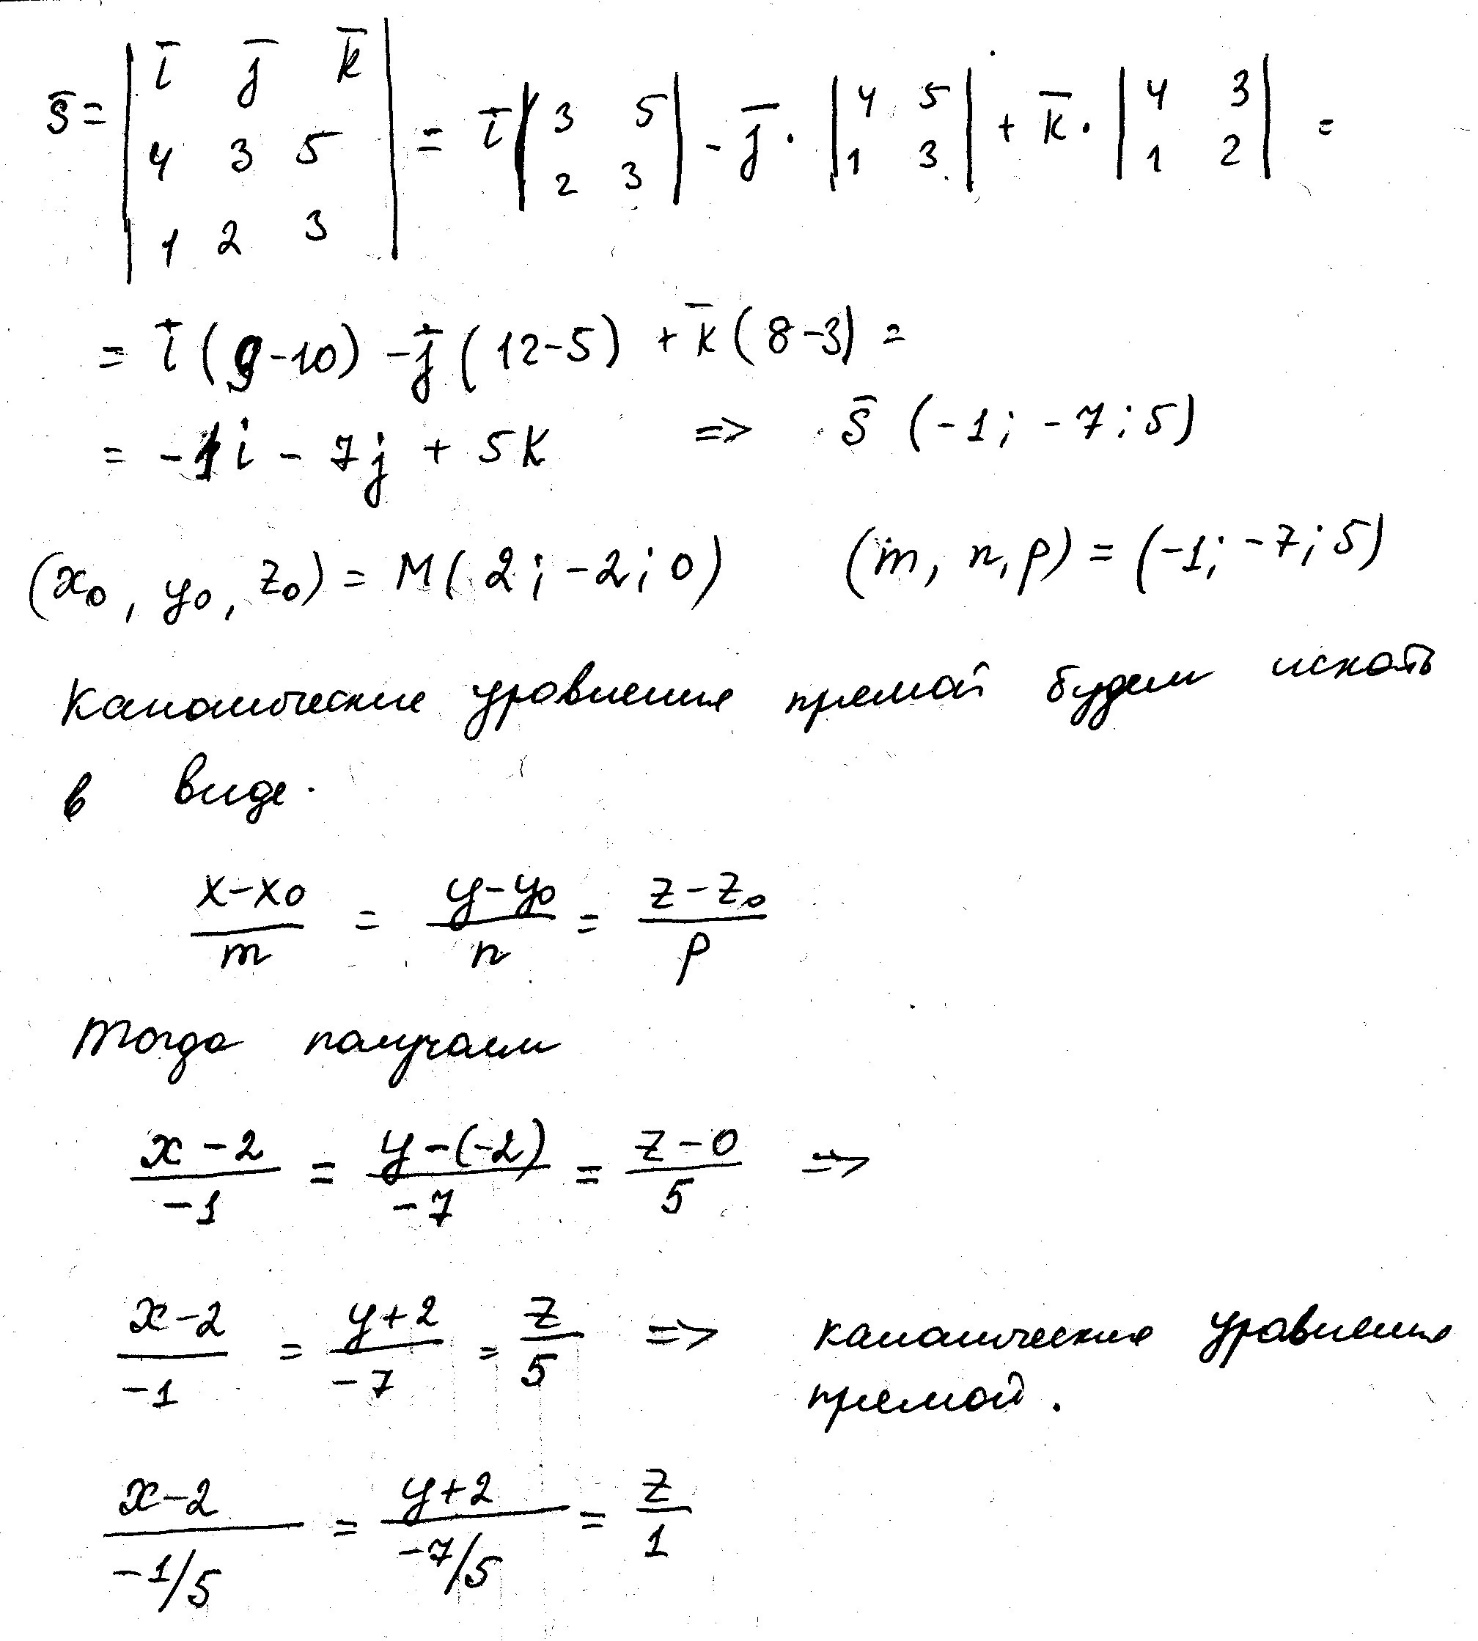 s̄ = | ī j̄ k̄ ; 4 3 5 ; 1 2 3 | = ī | 3 5 ; 2 3 | - j̄ · | 4 5 ; 1 3 | + k̄ · | 4 3 ; 1 2 | =
= ī (9-10) - j̄ (12-5) + k̄ (8-3) =
= -1i - 7j + 5k => s̄ (-1; -7; 5)
(x₀, y₀, z₀) = M(2; -2; 0) (m, n, p) = (-1; -7; 5)
Канонические уравнения прямой будем искать
в виде.
(x-x₀)/m = (y-y₀)/n = (z-z₀)/p
Тогда получаем
(x-2)/-1 = (y-(-2))/-7 = (z-0)/5 =>
(x-2)/-1 = (y+2)/-7 = z/5 => канонические уравнения
прямой.
(x-2)/(-1/5) = (y+2)/(-7/5) = z/1